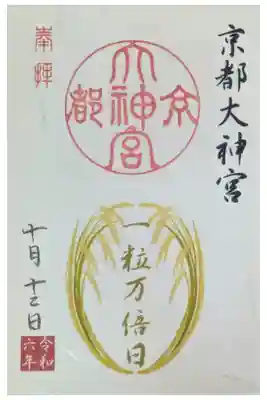 京都大神宮
京都大神宮
奉拝
一粒万倍日
十月十二日
令和六年